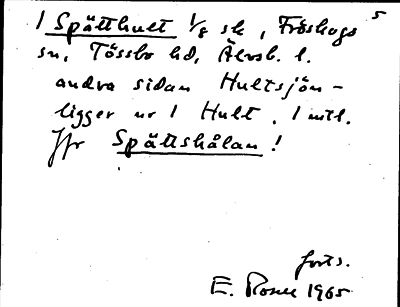 5
1 Spätthult 1/8 sk, Fröskogs
sn, Tössbo hd, Älvsb. l.
andra sidan Hultsjön –
ligger nr 1 Hult. 1 mtl.
Jfr Spättshålan!
forts.
E. Rosell 1965